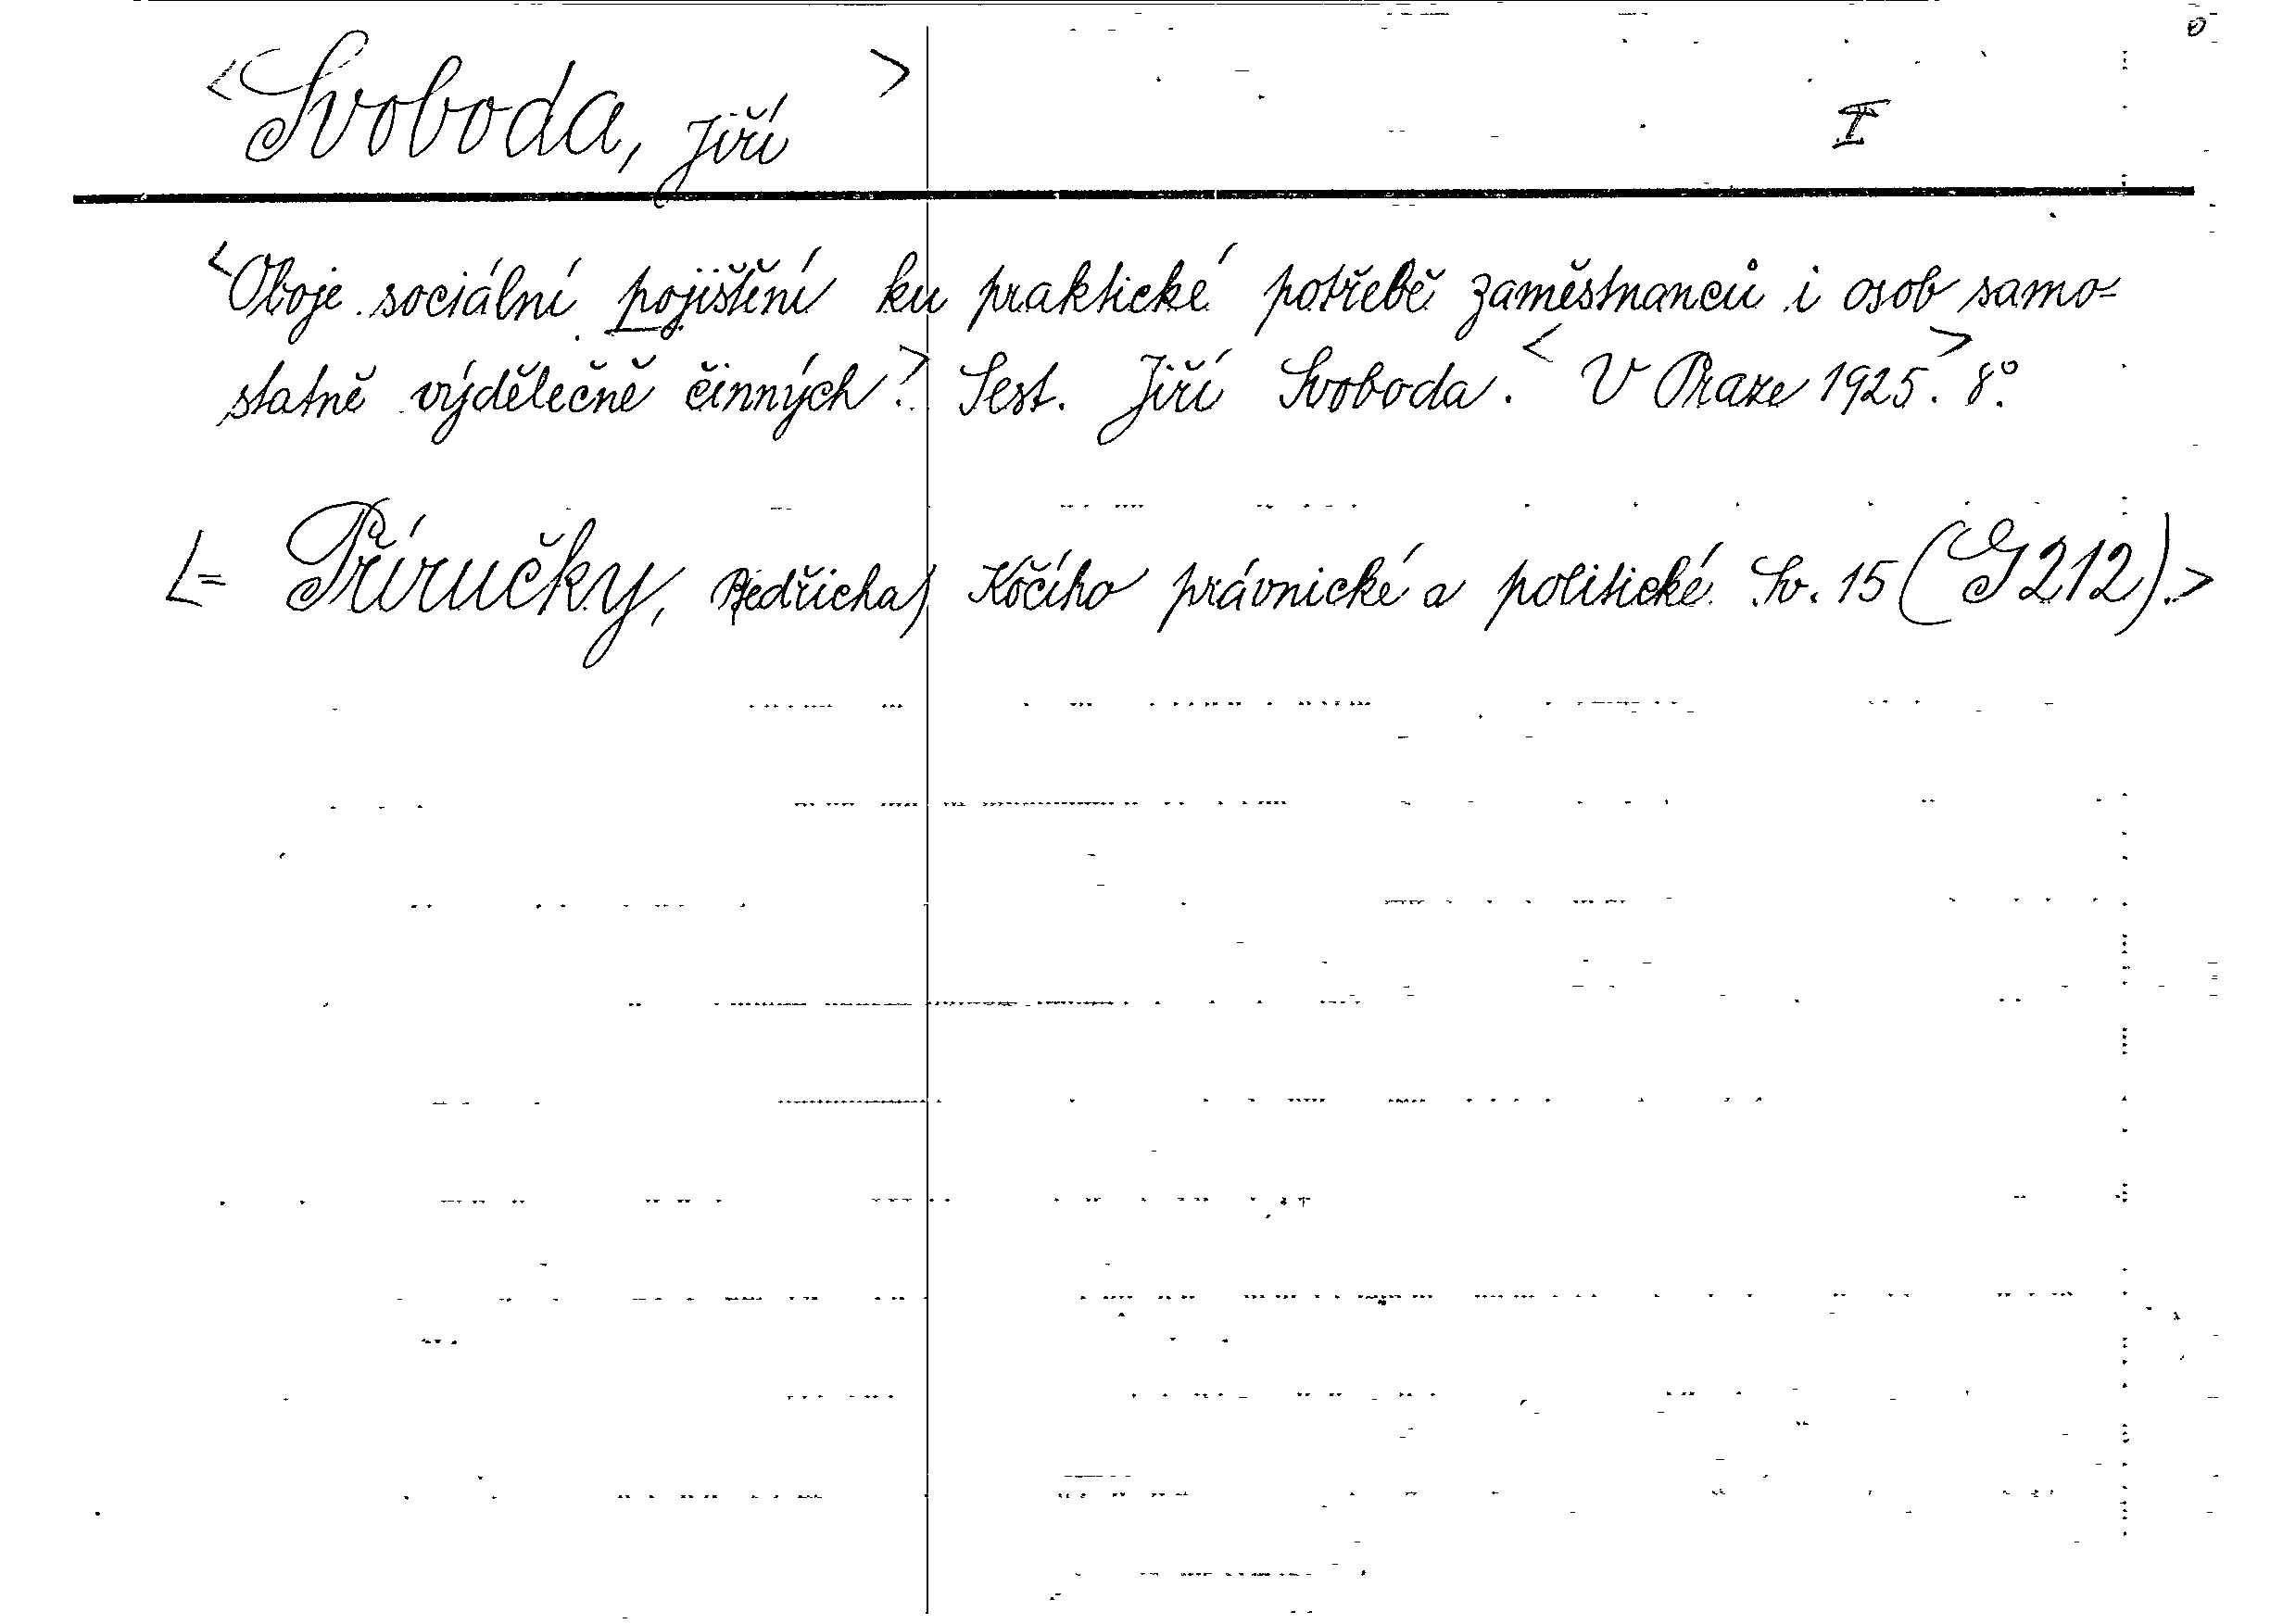 <Svoboda, Jiří> I
<Oboje sociální pojištění ku praktické potřebě zaměstnanců i osob samo=
statně výdělečně činných.> Sest. Jiří Svoboda. <V Praze 1925.> 8°.
<= Příručky, Bedřicha) Kočího právnické a politické. Sv. 15 (G 212).>